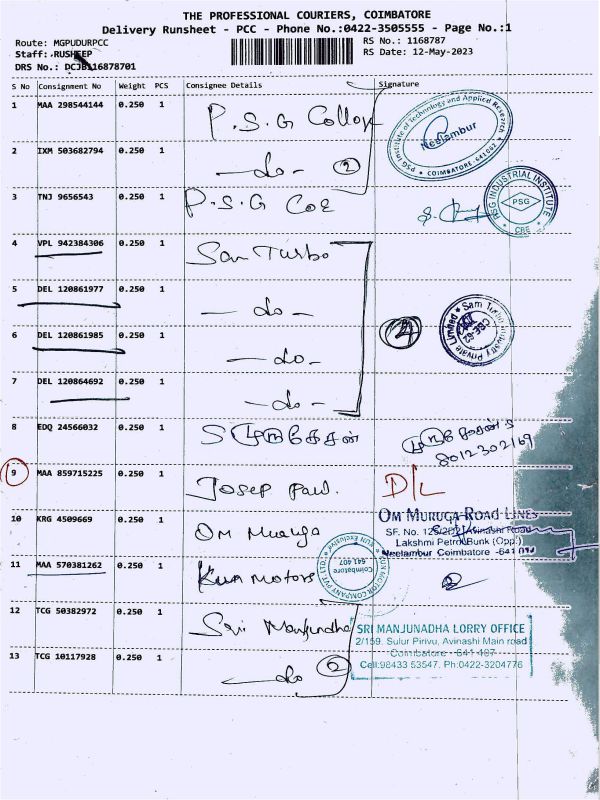 THE PROFESSIONAL COURIERS, COIMBATORE
Delivery Runsheet - PCC - Phone No.:0422-3505555 - Page No.:1
Route: MGPUDURPCC
RS No.: 1168787
Staff: RUSHEEP
RS Date: 12-May-2023
DRS No.: DCJB116878701
S No Consignment No Weight PCS Consignee Details Signature
1 MAA 298544144 0.250 1 P.S.G College
PSG Institute of Technology and Applied Research
Neelambur
COIMBATORE-641062
2 IXM 503682794 0.250 1 -do- 2
3 TNJ 9656543 0.250 1 P.S.G COE
PSG INDUSTRIAL INSTITUTE
PSG
CBE
4 VPL 942384306 0.250 1 Sam Turbo
5 DEL 120861977 0.250 1 -do-
4
Sam Turbo Industry Private Limited
6 DEL 120861985 0.250 1 -do-
7 DEL 120864692 0.250 1 -do-
8 EDQ 24566032 0.250 1 S முருகேசன்
முருகேசன் S
8012302169
9 MAA 859715225 0.250 1 Josep Paul. D/L
10 KRG 4509669 0.250 1 Om Muruga
OM MURUGA ROAD LINES
SF. No. Avinashi Road
Lakshmi Petrol Bunk (Opp.)
Neelambur Coimbatore -641
11 MAA 570381262 0.250 1 Kun Motors
KUN MOTOR COMPANY PVT LTD
KUN Exclusive
Coimbatore
641 407
12 TCG 50382972 0.250 1 Sri Manjundha
SRI MANJUNADHA LORRY OFFICE
2/159, Sulur Pirivu, Avinashi Main road
Coimbatore - 641 407
Cell:98433 53547. Ph:0422-3204776
13 TCG 10117928 0.250 1 -do 2